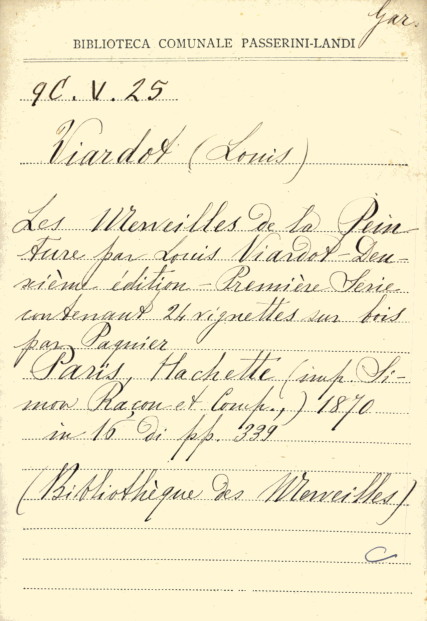 Gar.
BIBLIOTECA COMUNALE PASSERINI-LANDI
9C. V. 25
Viardot (Louis)
Les Merveilles de la Pein-
ture par Louis Viardot - Deu-
xième édition - Première Serie
contenant 24 vignettes sur bois
par Paquier
Paris, Hachette (imp. Si-
mon Raçon et Comp.,) 1870
in 16, di pp. 339
(Bibliothèque des Merveilles)
C